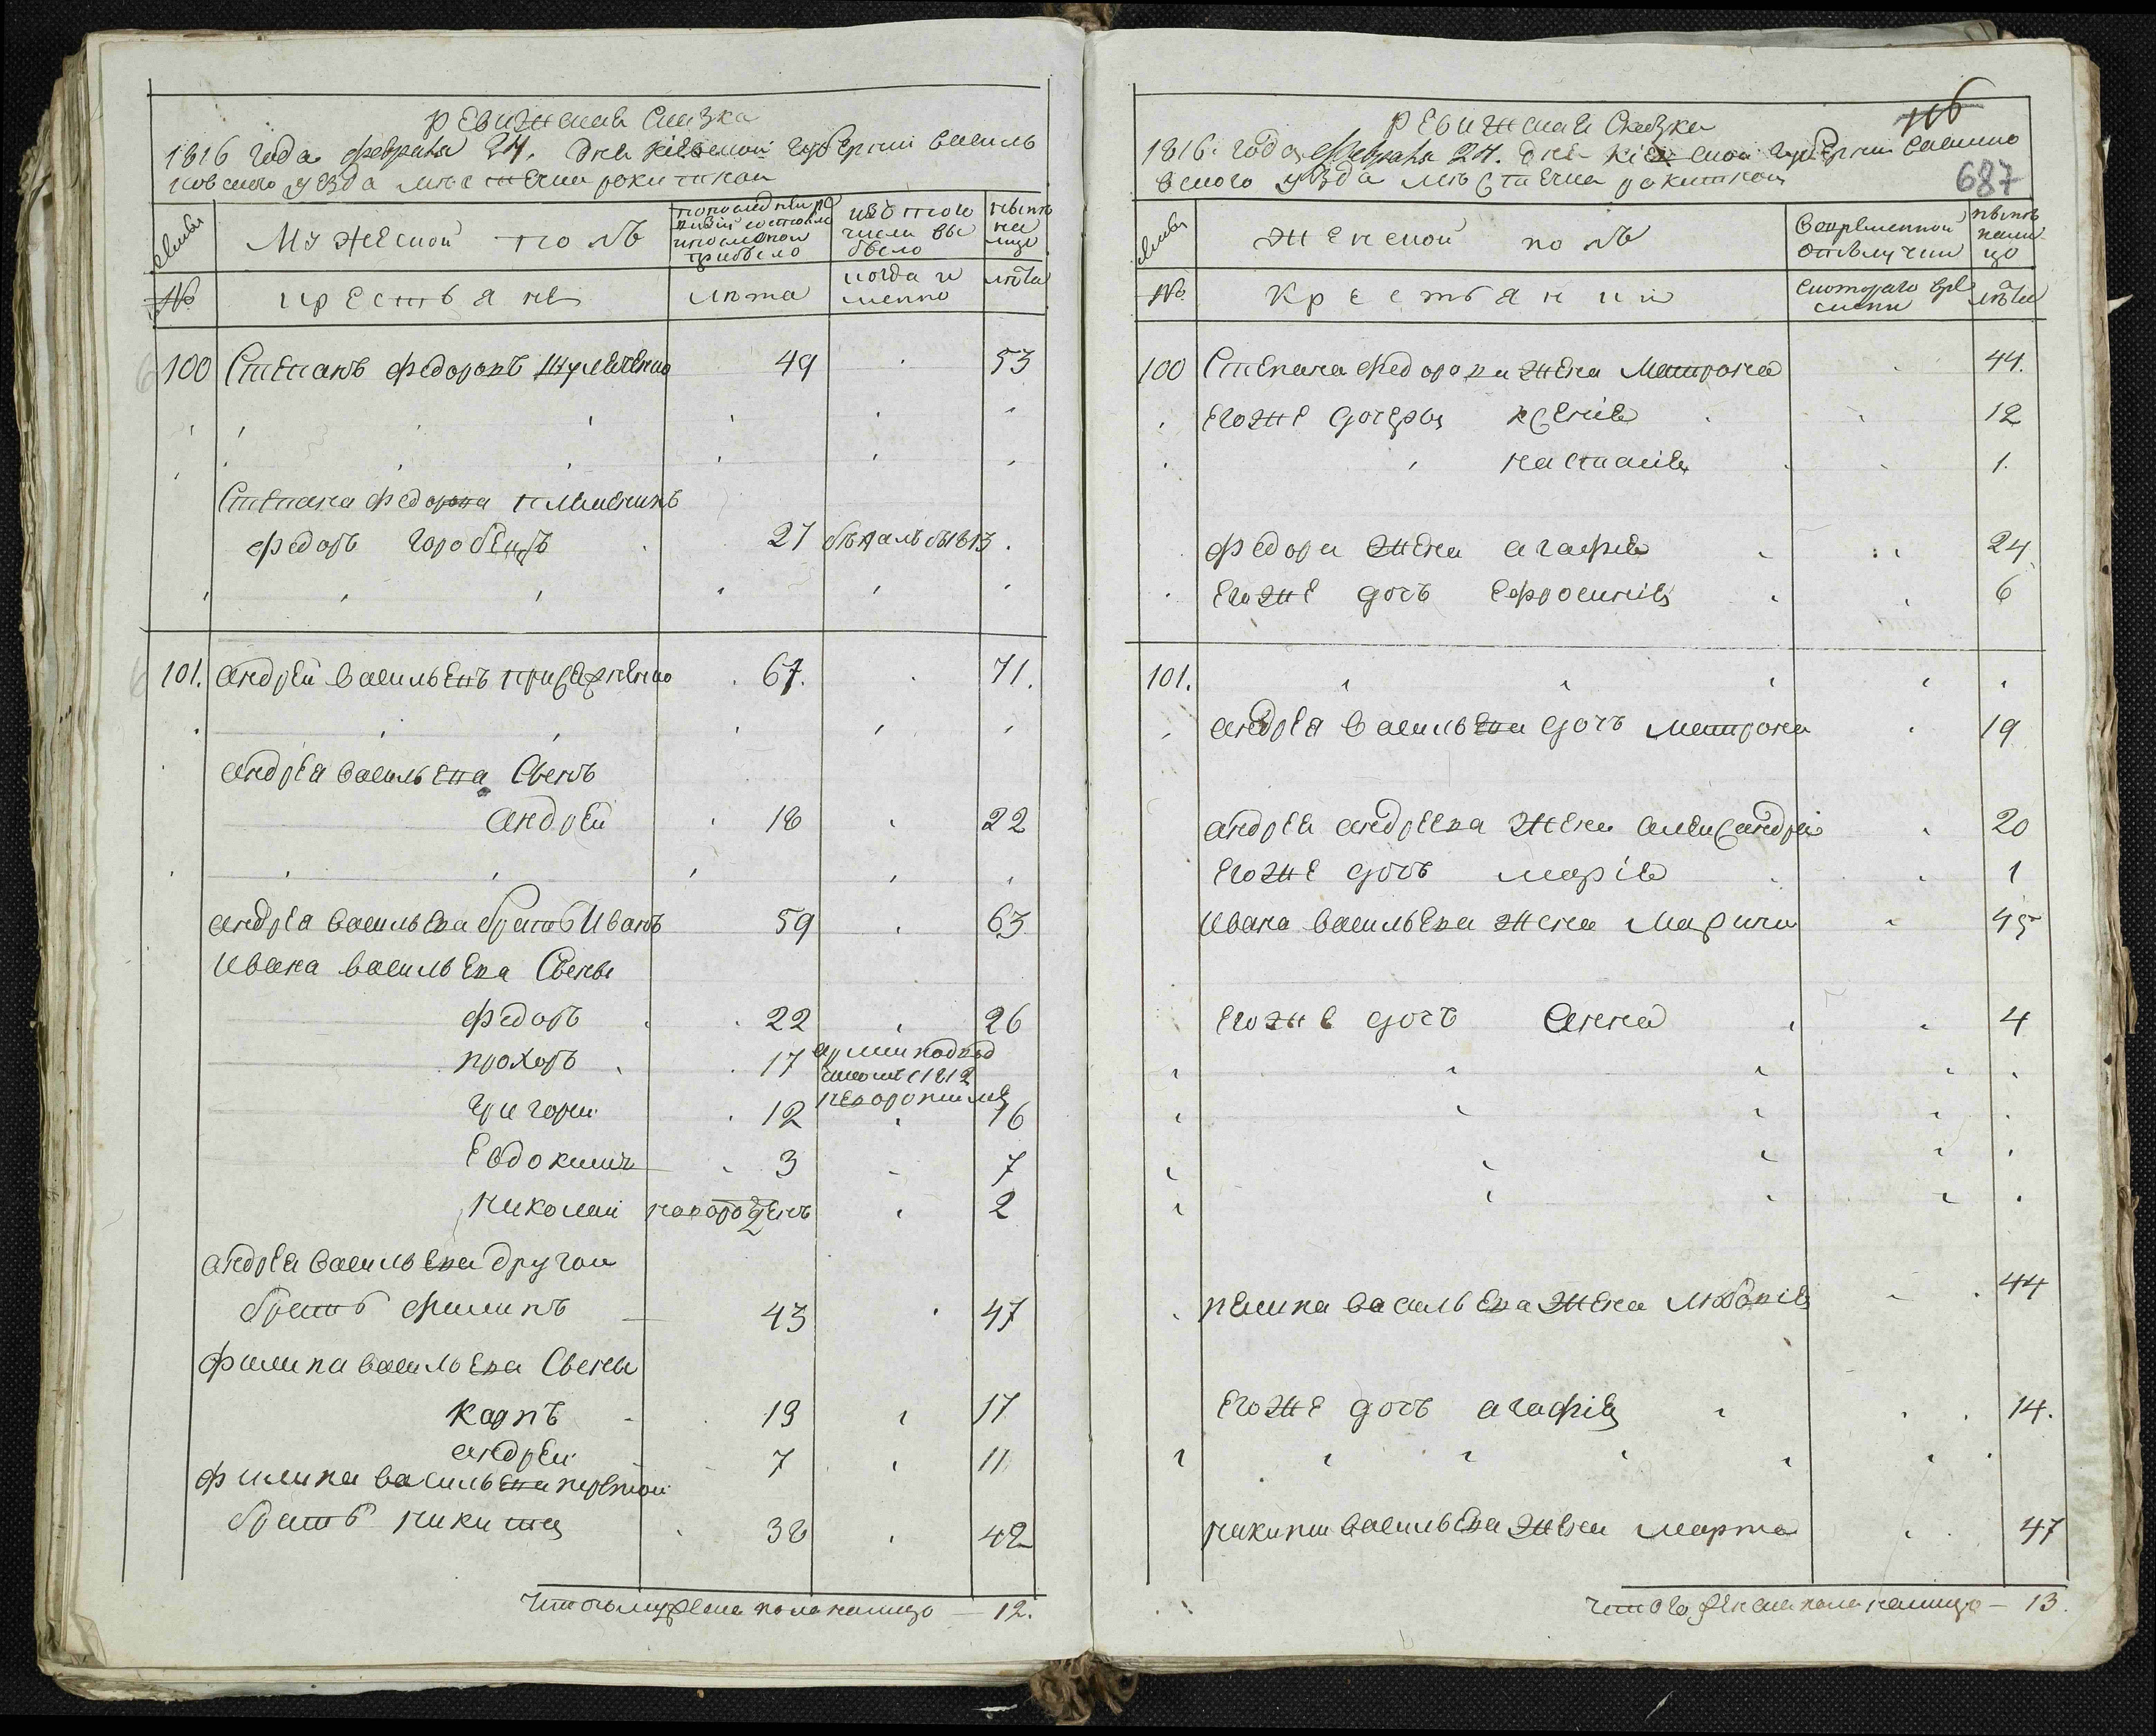 ревижская сказка
1816 года февраля 24. дня кіевской губерніи василь
ковскаго уезда местечка рокитной
семьи
Мужеской полъ
по последней ре
визіи состояло
и после оной
прибыло
изъ того
числа вы
было
ныне
на
лицо
№
крестьяне
лета
когда и
менно
лета
100 Степанъ федоровъ 49 53
Степана федорова племеникъ
федоръ горобецъ 27 бежалъ въ 813
101. андрей васильевъ 67. 71.
андрея васильева Сынъ
андрей 18 22
андрея васильева братъ Иванъ 59 63
Ивана васильева Сыны
федоръ 22 26
прохоръ 17
1812
григорий 12 16
Евдокимъ 3 7
николай новорожденъ 2 2
андрея васильева другой
братъ филипъ 43 47
филипа васильева Сыны
карпъ 13 17
андрей 7 11
филипа васильева третой
братъ никита 38 42
Итого мужеска пола налицо — 12.
116
687
ревижская Сказка
1816. года февраля 24. дня кіевской губерніи василко
вского уезда местечка рокитной
семьи
женской полъ
во временной
отлучки
ныне
нали
цо
№
крестьянки
с котораго вре
мени
лета
100 Степана федорова жена Матрона 44.
его же дочеры ксенія 12
настасія 1.
федора жена агафия 24
его же дочъ ефросинія 6
101.
андрея васильева дочъ матрона 19
андрея андреева жена александра 20
его же дочъ марія 1
Ивана васильева жена Марина 45
его же дочъ анна 4
филипа васильева жена 44
его же дочъ агафія 14.
никиты васильева жена марта 47
Итого женска пола налицо — 13.